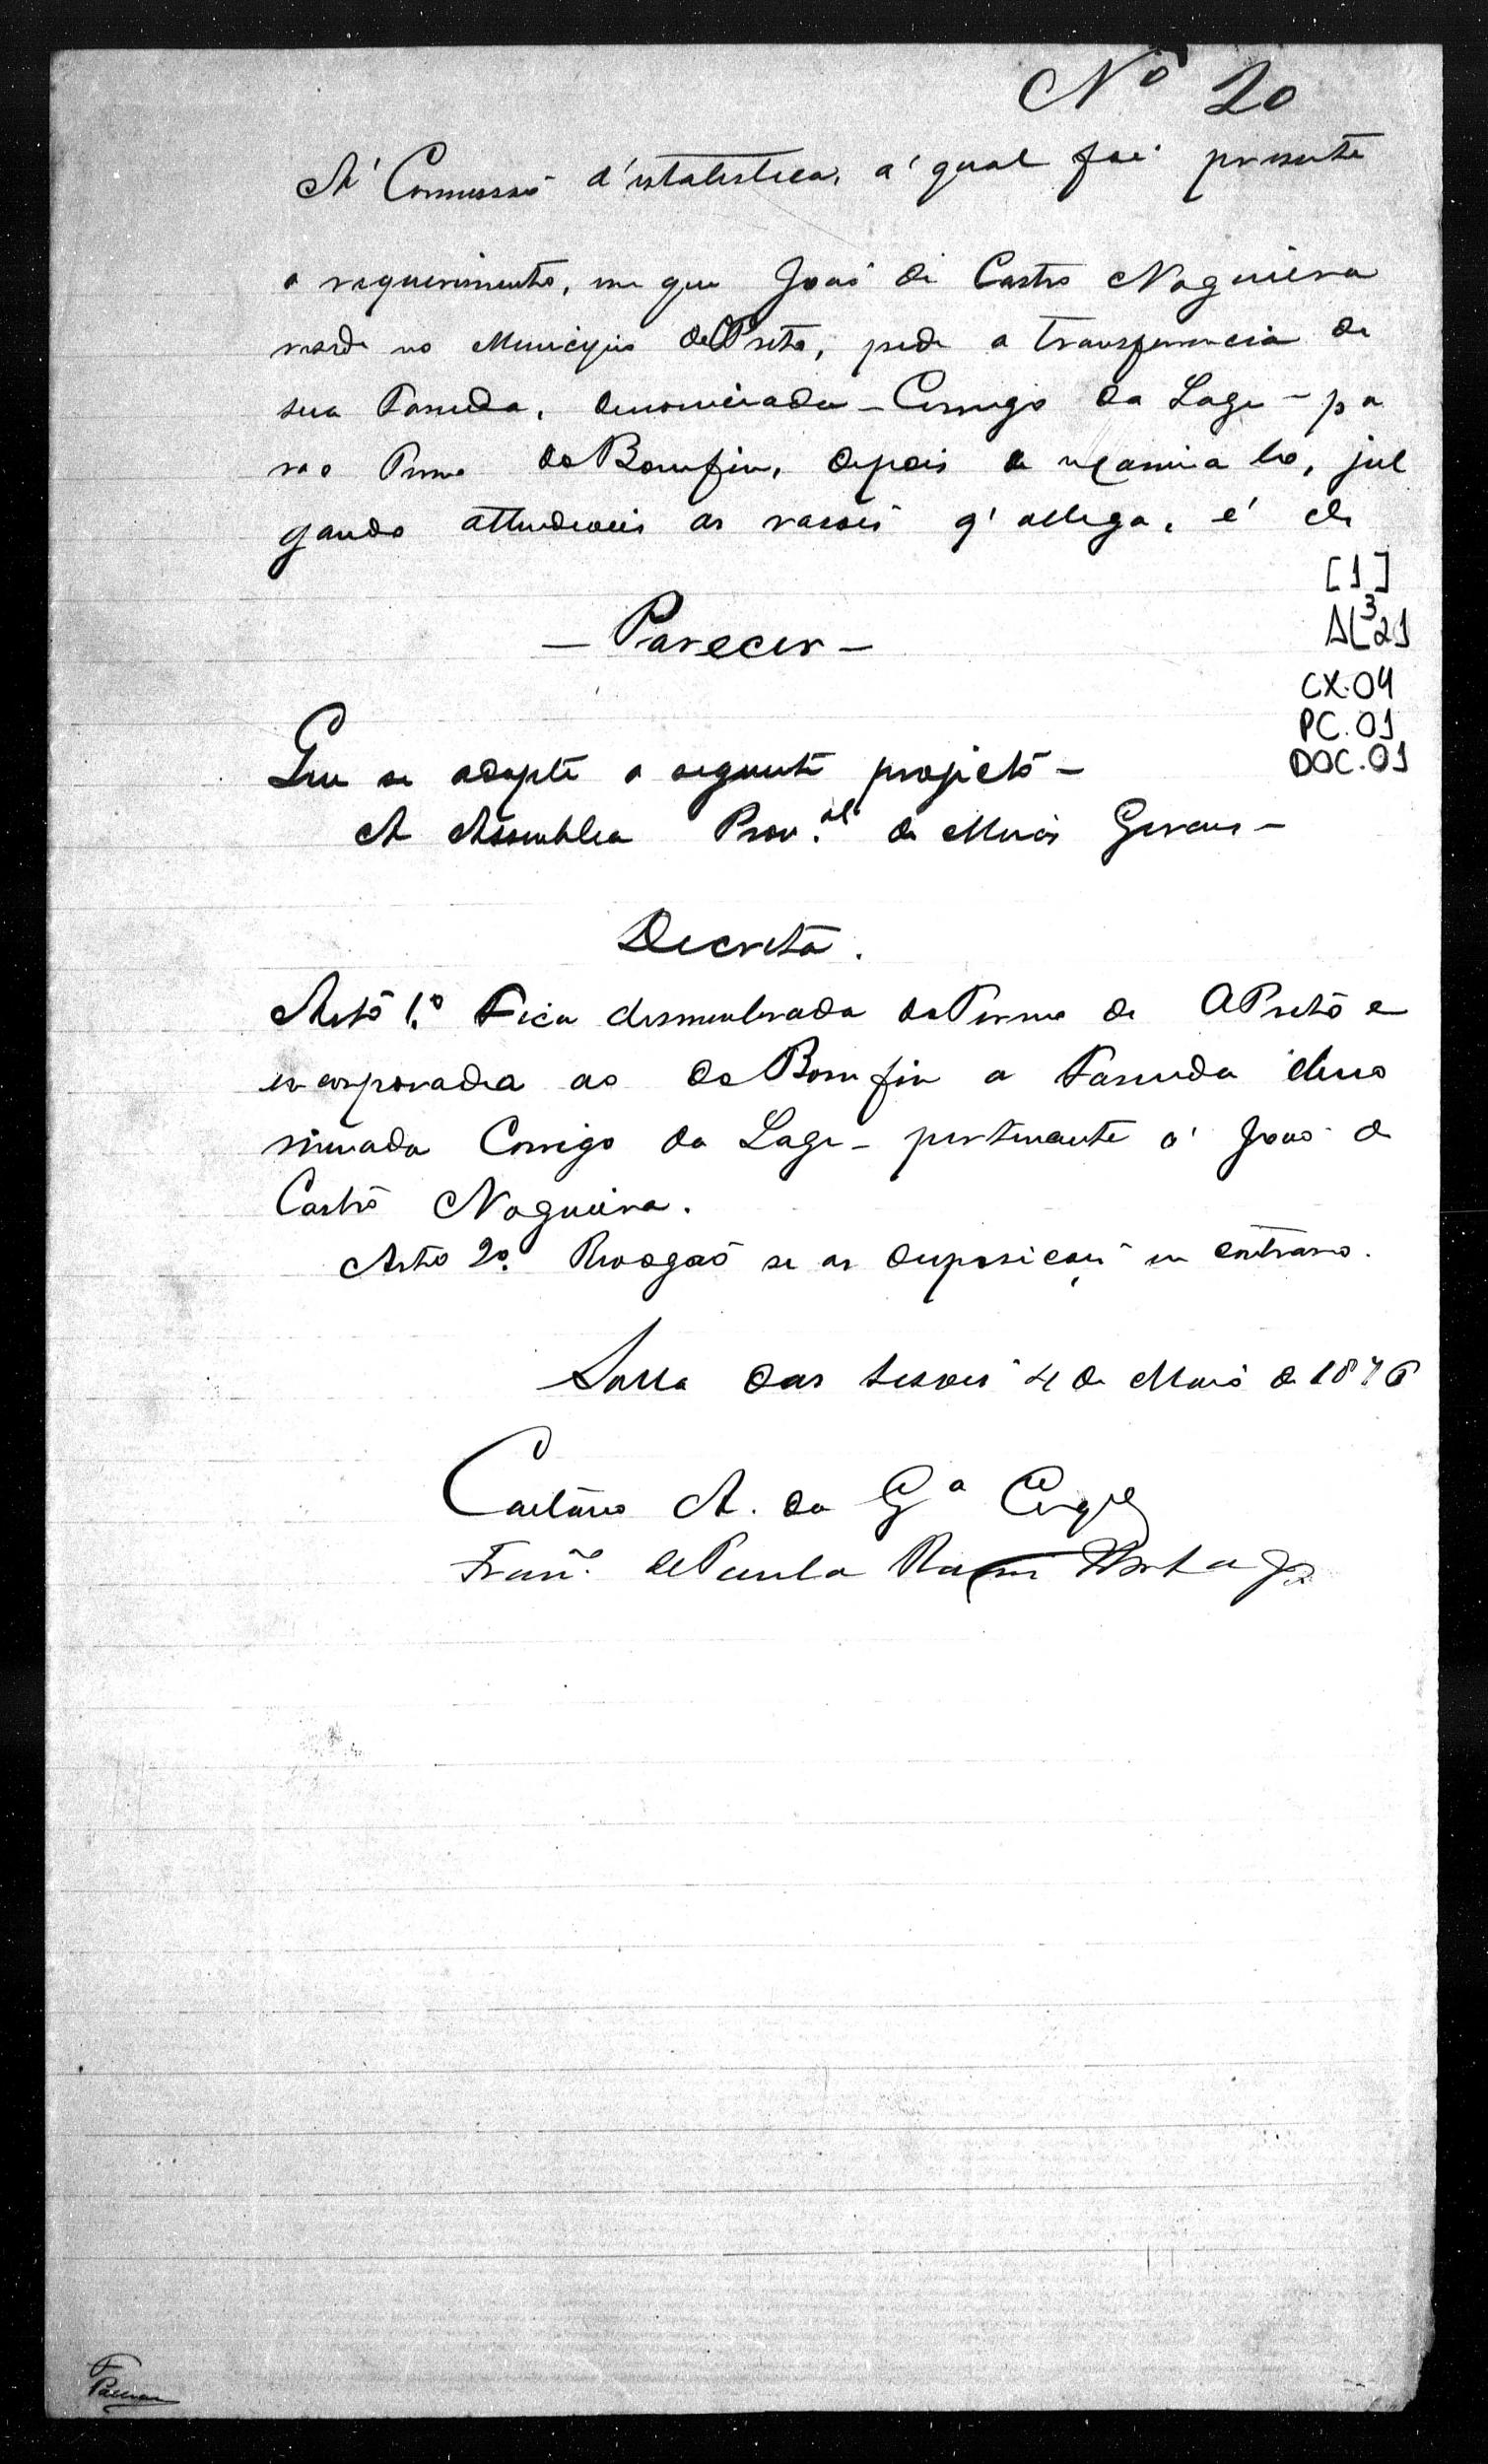 Nº 20
A' Commissão d'estatistica, a' qual foi presente
o requerimento, em que João de Castro Nogueira
morador no Municipio de OPreto, pede a transferencia de
sua Fazenda, denominada - Corrigo da Lage - pa
ra o Termo do Bomfim, depois de examina lo, jul
gando attendiveis as rasões q' allega, é de
[1]
AL 3 21
- Parecer -
CX. 04
PC. 01
DOC. 01
Que se adopte o seguinte projecto -
A Assemblea Prov.al de Minas Geraes -
Decreta.
Arto 1.º Fica desmembrada do Termo de OPreto e
incorporada ao do Bomfim a Fazenda deno
minada Corrigo da Lage - pertencente a' João de
Castro Nogueira.
Arto 2º. Revogão se as disposições em contrario.
Salla das sessões 4 de Maio de 1876
Caetano A. da Gª
Fran.co de Paula